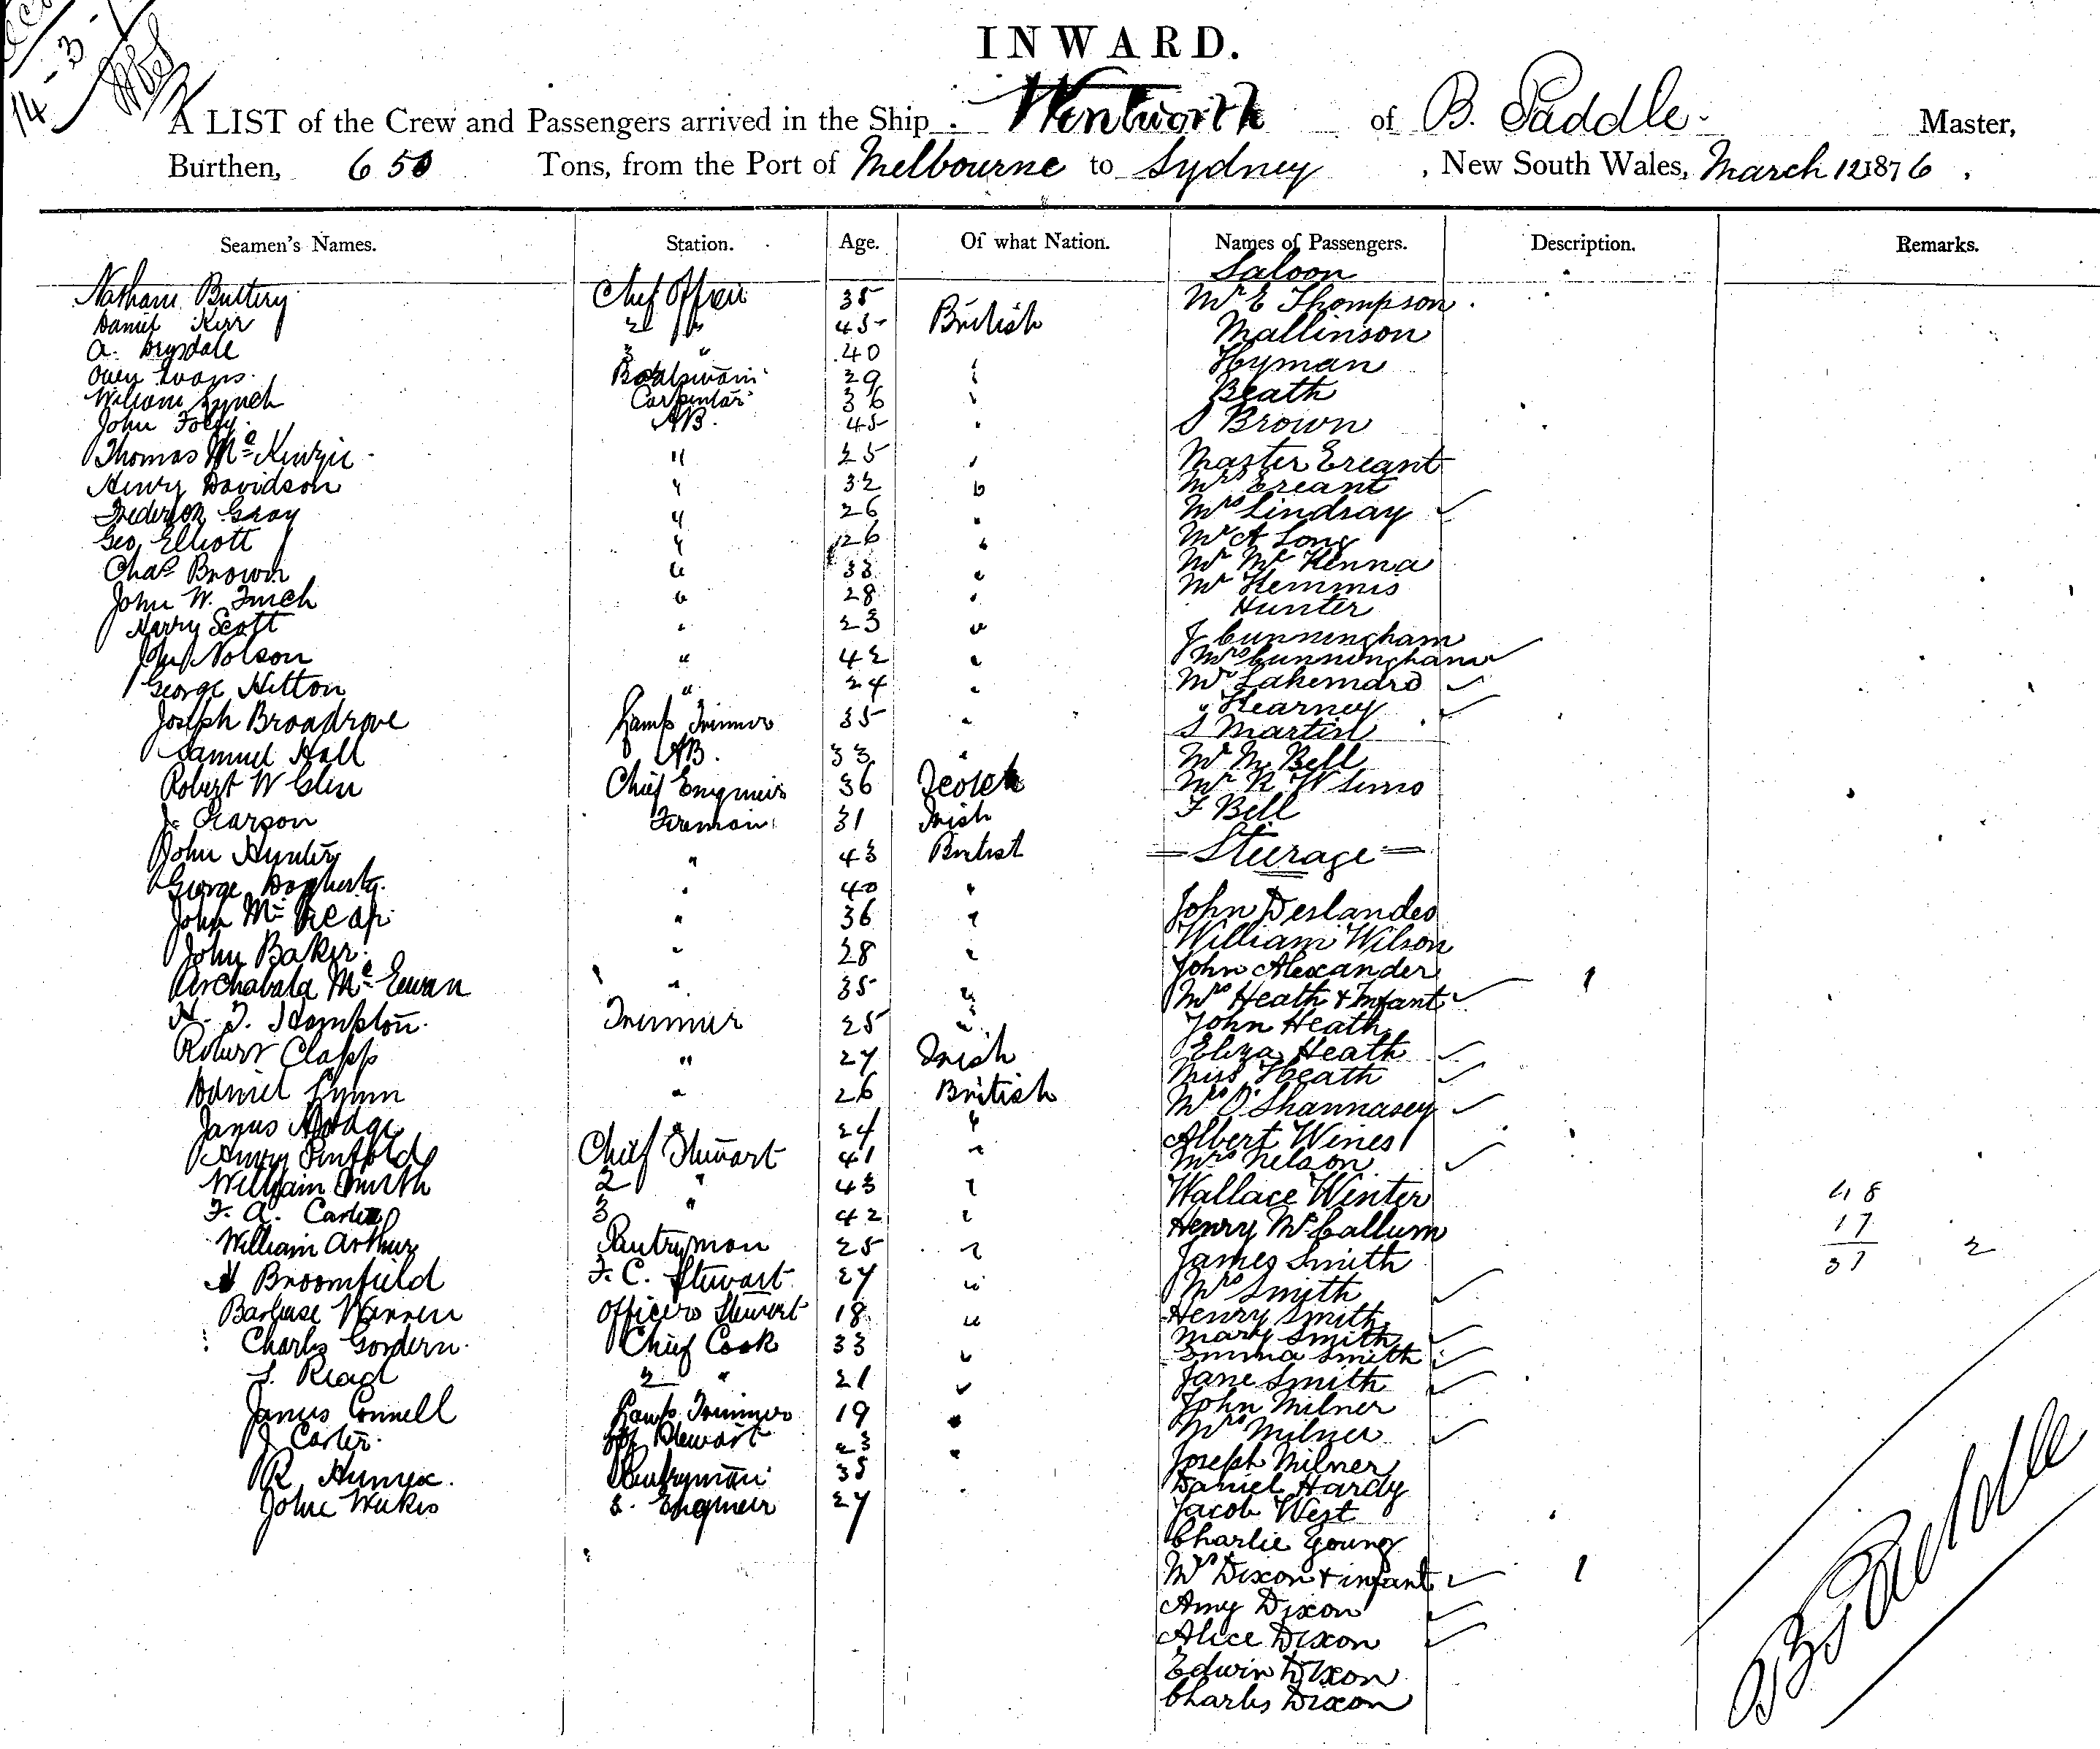 14-3-
INWARD.
A LIST of the Crew and Passengers arrived in the Ship Wentworth of B. Paddle Master,
Burthen, 650 Tons, from the Port of Melbourne to Sydney, New South Wales, March 12 1876.
Seamen's Names. Station. Age. Of what Nation. Names of Passengers. Description. Remarks.
Saloon
Natham Buttery Chief Officer 35 Mr E Thompson
Daniel Kerr 2 " 45 British Mallinson
A. Drysdale 3 " 40 Hyman
Owen Evans Boatswain 29 " Beath
William Lynch Carpenter 36 " S Brown
John Foley AB. 45 "
Thomas Mc Kenzie " 25 " Master Ereant
Henry Davidson " 32 " Mrs Ereant
Frederick Gray " 26 " Mrs Lindsay
Geo Elliott " 26 " Mr A Long
Chas Brown " 33 " Mr McKenna
John W. Finch " 28 " Mr Hemmis
Harry Scott " 23 " Hunter
Nolson " 42 " J Cunningham
Mrs Cunningham
George Hilton " 24 " Mrs Lakemard
Joseph Broadrove Lamp Trimmer 35 " " Kearney
S Martin
Samuel Hall AB. 33 " Mr M Bell
Robert W Glen Chief Engineer 36 Scotch Mr R W Sims
J. Pearson Fireman 31 Irish F Bell
John Hunter " 43 British Steerage
George Dogherty " 40 "
John Mc " 36 " John Deslandes
John Baker " 28 " William Wilson
John Alexander
Archabald Mc Ewan " 35 " Mrs Heath & Infant 1
H. T. Hampton Trimmer 25 " John Heath
Robert Clapp " 27 Irish Eliza Heath
Miss Heath
Daniel Lynn " 26 British Mrs O'Shannasey
James Hodge " 24 " Albert Wines
Henry Penfold Chief Stewart 41 " Mrs Nelson
William Smith 2 " 43 " Wallace Winter 48
F. A. Carter 3 " 42 " Henry McCallum 17
William Arthur Pantryman 25 " James Smith 37 2
Broomfield F. C. Stewart 27 " Mrs Smith
Warren Officers Stewart 18 " Henry Smith
Mary Smith
Charles Gordern Chief Cook 33 " Emma Smith
Read 2 " 21 " Jane Smith
James Connell Lamp Trimmer 19 " John Milner
J Carter Stewart 23 " Mrs Milner
Joseph Milner
R Pantryman 35 Daniel Hardy
John Weekes 2. Engineer 27 " Jacob West
Charlie Young
Mrs Dixon & infant 1
Amy Dixon
Alice Dixon
Edwin Dixon
Charles Dixon
B Paddle